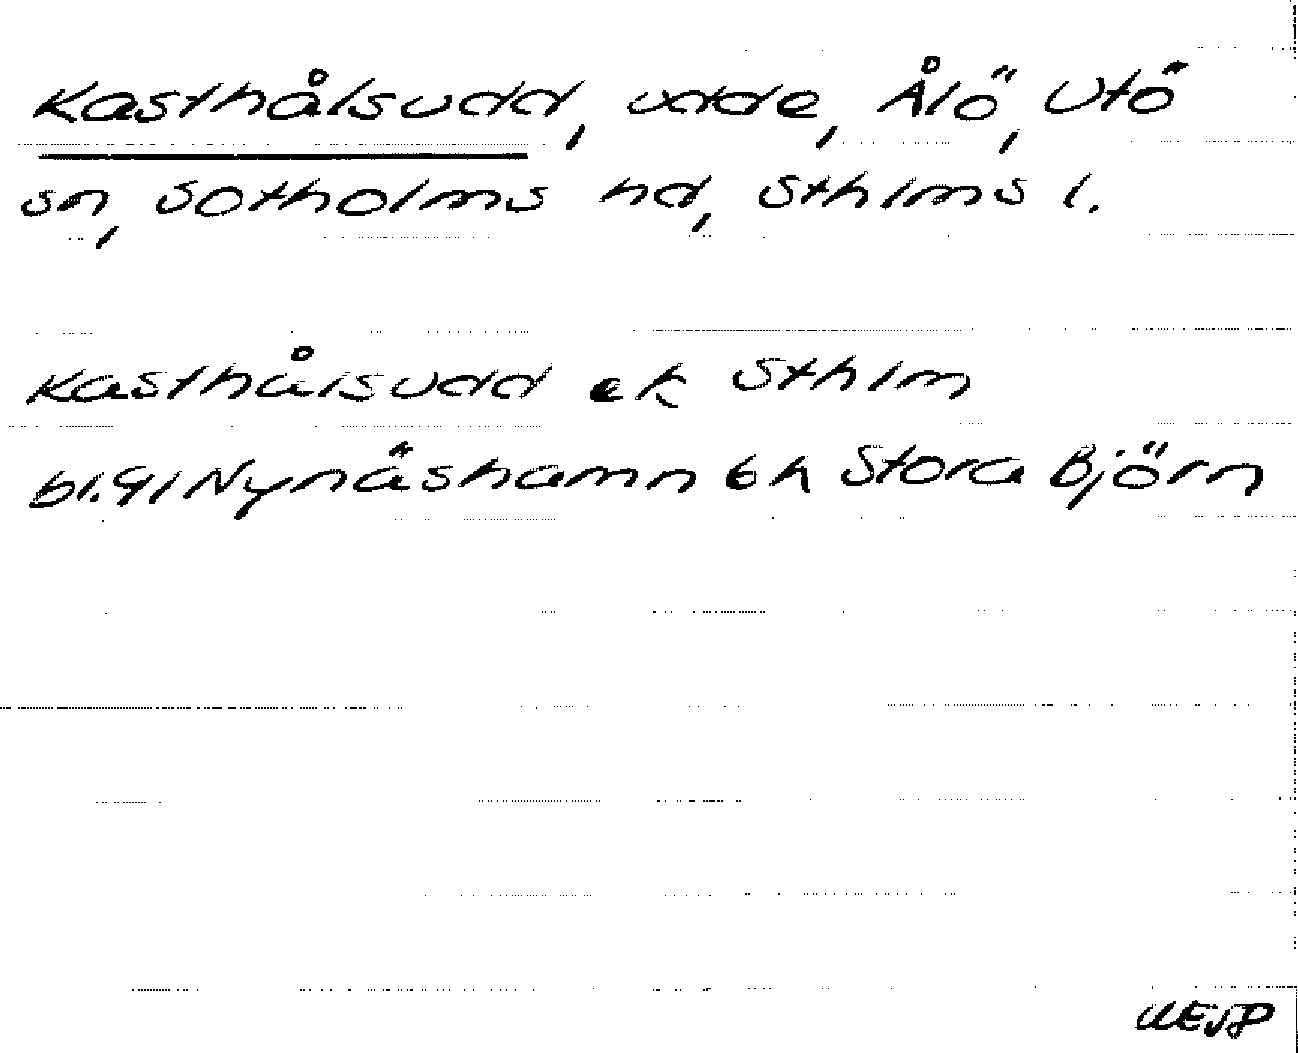 Kasthålsudd, udde, Ålö, Utö
sn, Sotholms hd, Sthlms l.
Kasthålsudd ek Sthlm
bl. 91 Nynäshamn 6 h Stora Björn